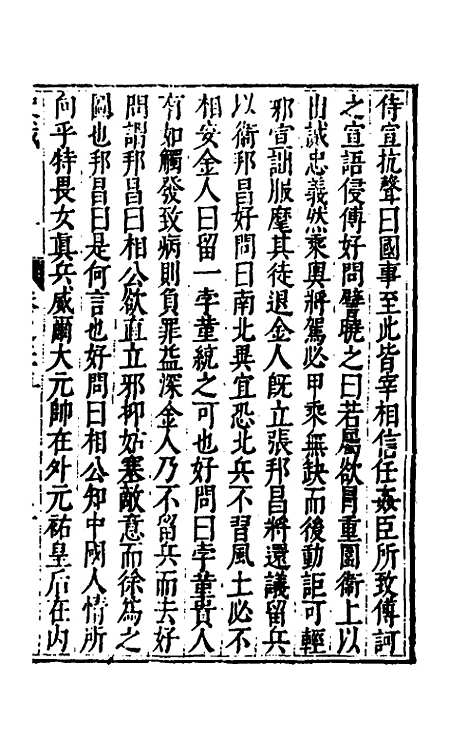 侍宣抗聲曰國事至此皆宰相信任姦臣所致傅訶
之宣語侵傅好問譬曉之曰若屬欲冐重圍衛上以
出誠忠義然乘輿將駕必甲乘無缺而後動詎可輕
邪宣詘服麾其徒退金人旣立張邦昌將還議留兵
以衛邦昌好問曰南北異宜恐北兵不習風土必不
相安金人曰留一孛菫統之可也好問曰孛菫貴人
有如觸發致病則負罪益深金人乃不留兵而去好
問謂邦昌曰相公欲眞立邪抑姑塞敵意而徐為之
圖也邦昌曰是何言也好問曰相公知中國人情所
向乎特畏女眞兵威爾大元帥在外元祐皇后在内